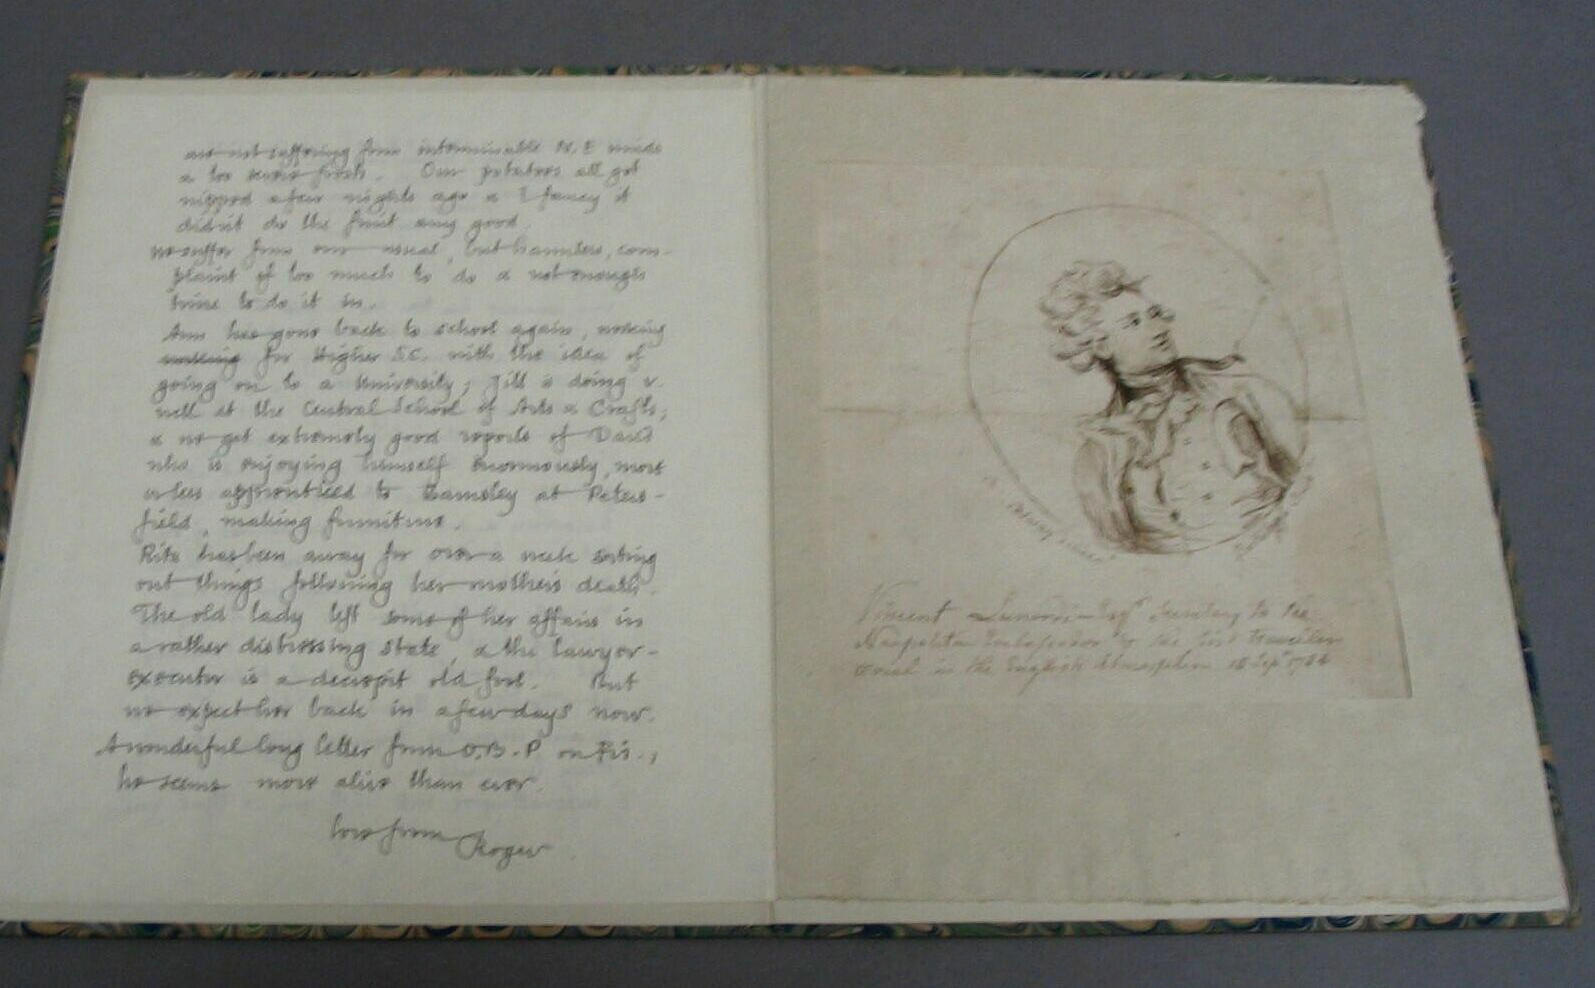 are not suffering from interminable N.E winds
& too severe frosts. Our potatoes all got
nipped a few nights ago & I fancy it
didn't do the fruit any good.
We suffer from our usual, but harmless, com-
plaint of too much to do & not enough
time to do it in.
Ann has gone back to school again, working
working for Higher S.C. with the idea of
going on to a University; Jill is doing v.
well at the Central School of Arts & Crafts;
& we get extremely good reports of David
who is enjoying himself enormously, more
or less apprenticed to Barnsley at Peters-
field, making furniture.
Rita has been away for over a week sorting
out things following her mother's death.
The old lady left some of her affairs in
a rather distressing state, & the lawyer-
executor is a decrepit old fool. But
we expect her back in a few days now.
A wonderful long letter from O.B.P on Fri.,
he seems more alive than ever.
love from Roger
Vincent Lunardi Esqr Secretary to the
Neapolitan Embassador & the first Traveller
aerial in the English Atmosphere 15 Sepr 1784